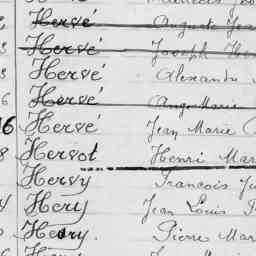 Hervé Auguste Jean
Hervé Joseph
3 Hervé Alexandre
6 Hervé Ange Marie
16 Hervé Jean Marie
8 Hervot Henri Mar
Hervy Francois Ju
4 Hery Jean Louis
Hery Pierre Mar